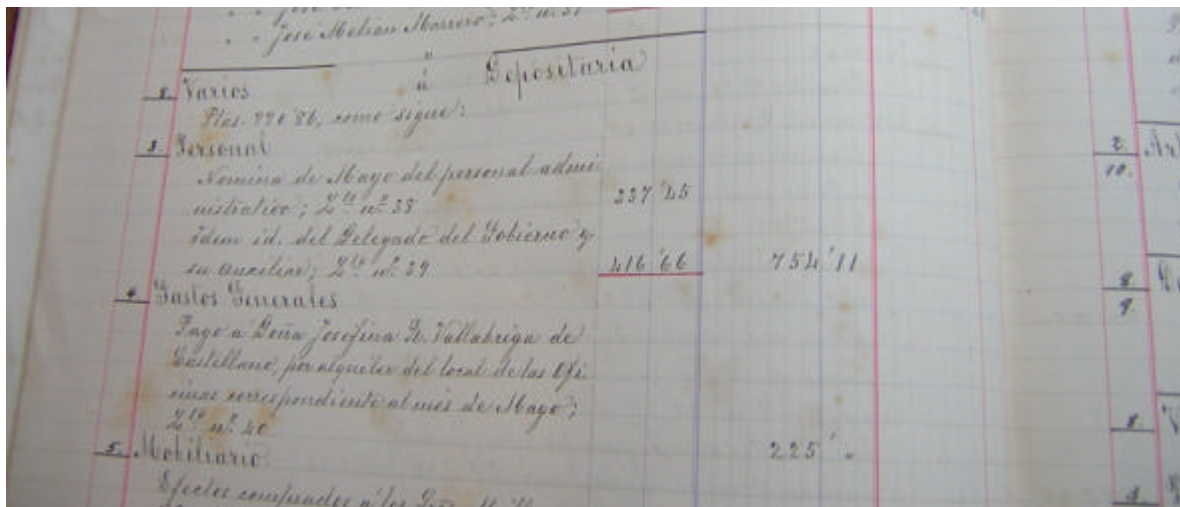 " " José Melian Marrero; Lto nº 37
"
8. Varios á Depositaria
Ptas. 990'86, como sigue:
3. Personal
Nomina de Mayo del personal admi-
nistrativo; Lto nº 38 337'45
Idem id. del Delegado del Gobierno y
su auxiliar; Lto nº 39 416'66 754'11
4. Gastos Generales
Pago a Doña Josefina R. Vallabriga de
Castellano, por alquiler del local de las Ofi-
cinas correspondiente al més de Mayo;
Lto nº 40 225' "
5. Mobiliario
Efectos comprados á los
2. Ar
10.
8.
9.
8. V
3.